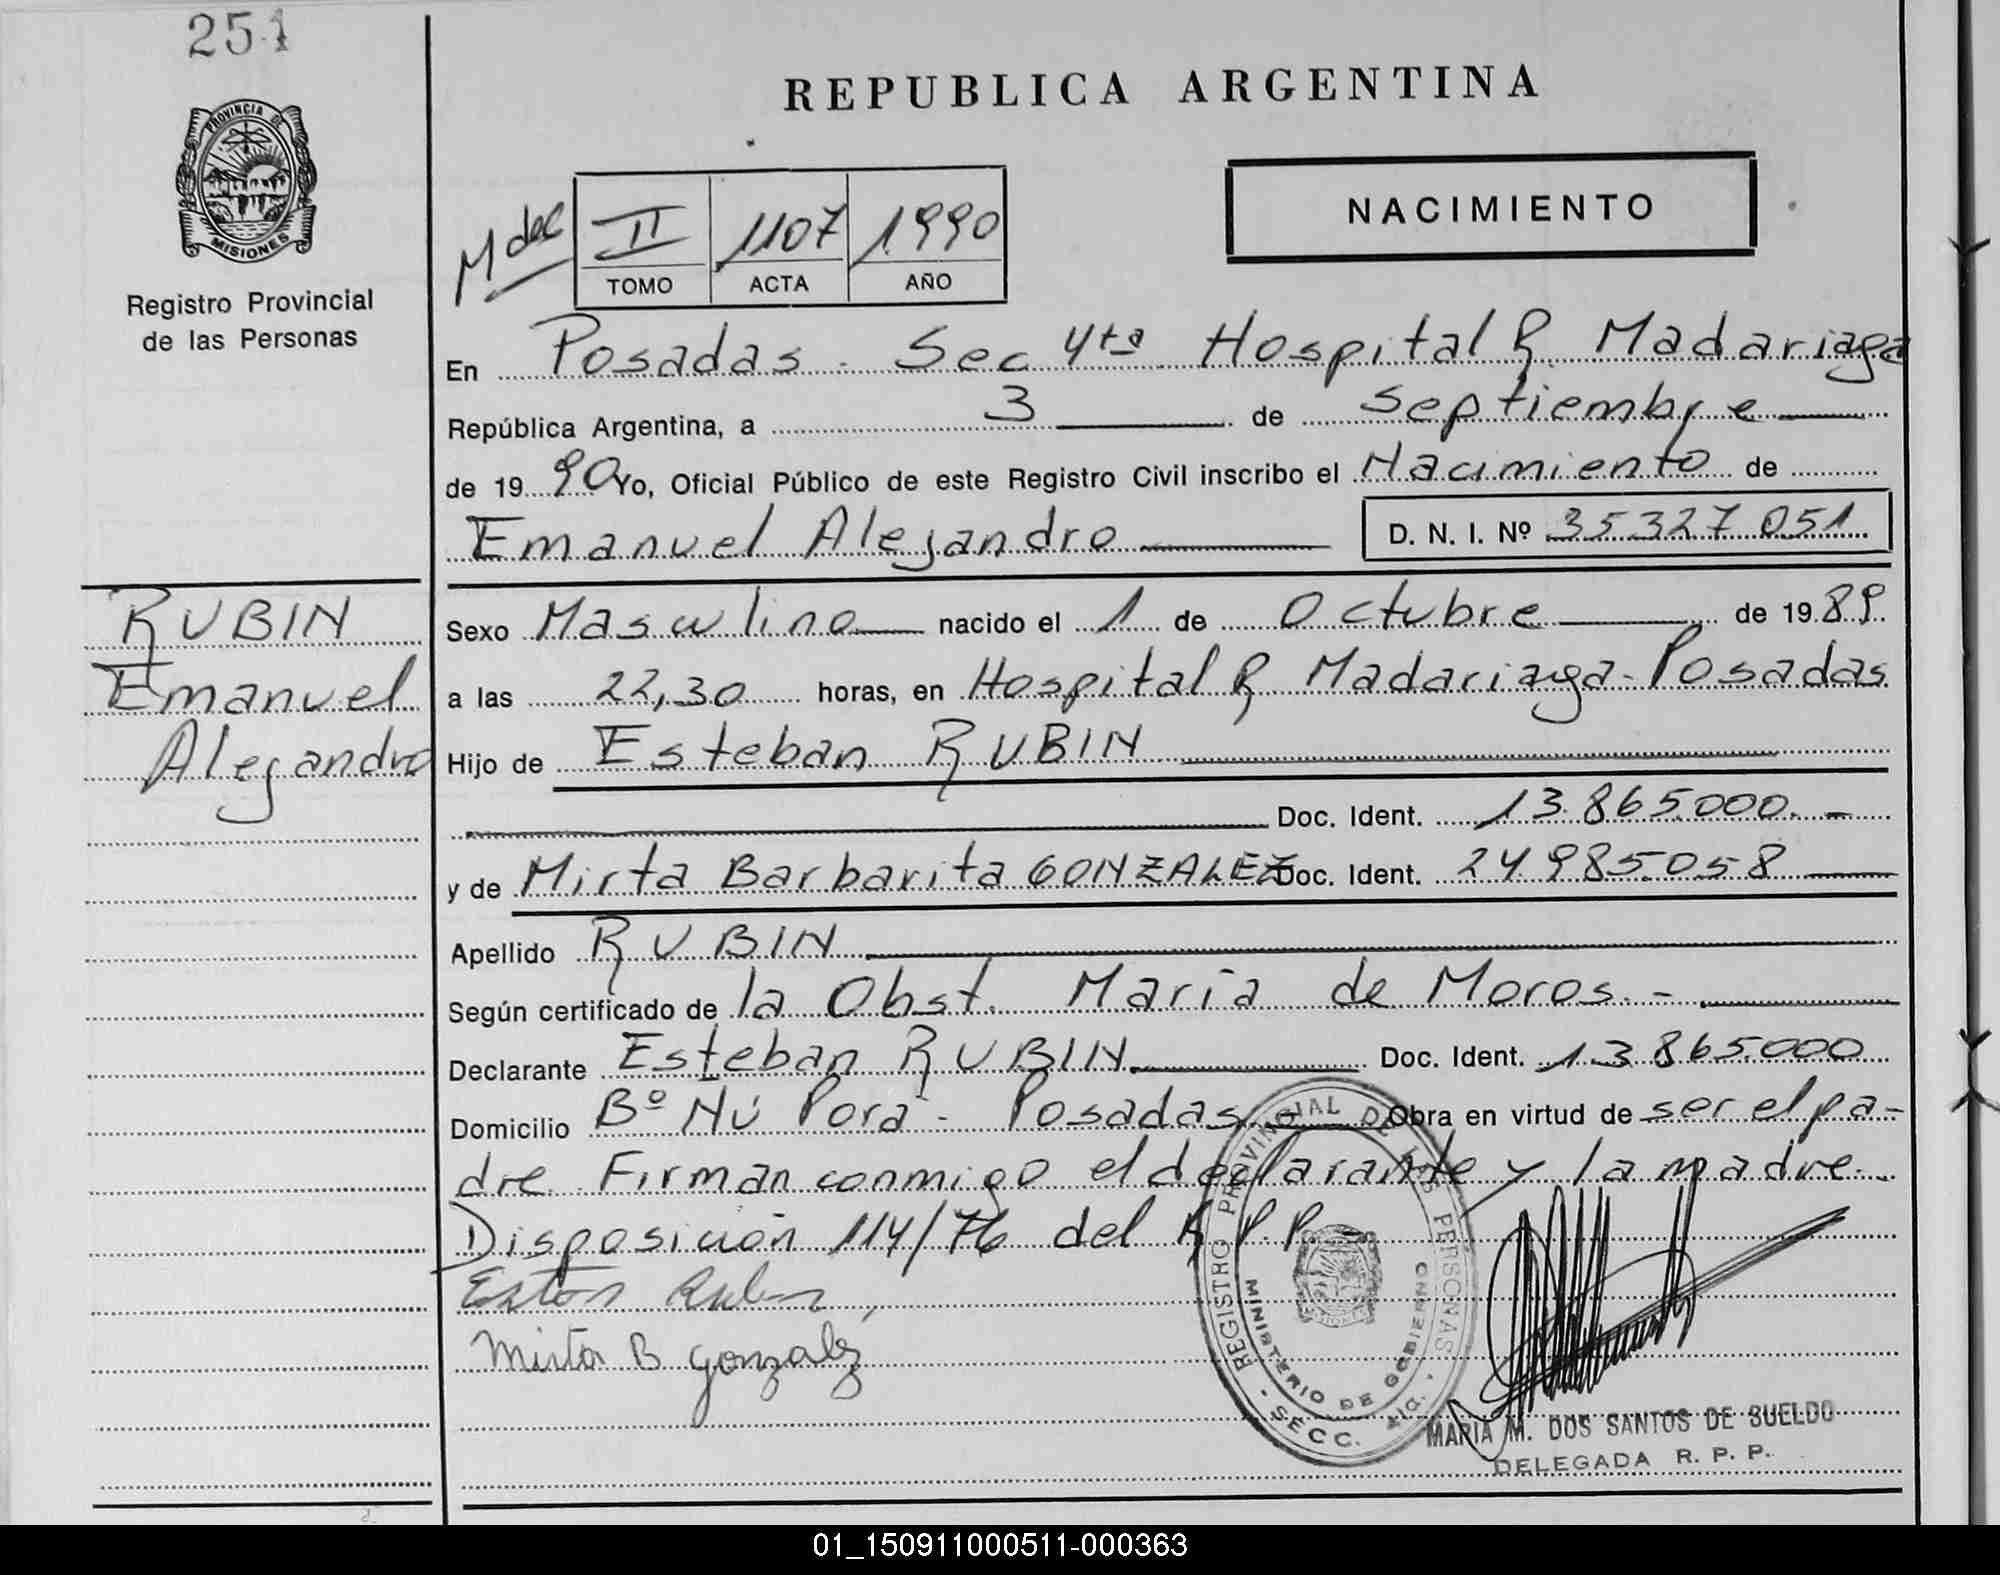 251
PROVINCIA DE
MISIONES
Registro Provincial
de las Personas
REPUBLICA ARGENTINA
NACIMIENTO
II 1107 1990
TOMO ACTA AÑO
En Posadas - Sec 4ta Hospital R. Madariaga
República Argentina, a 3 de Septiembre
de 1990 Yo, Oficial Público de este Registro Civil inscribo el Nacimiento de
Emanuel Alejandro D. N. I. Nº 35327051
RUBIN
Emanuel
Alejandro
Sexo Masculino nacido el 1 de Octubre de 1989
a las 22,30 horas, en Hospital R Madariaga - Posadas
Hijo de Esteban RUBIN
Doc. Ident. 13.865.000.-
y de Mirta Barbarita GONZALEZ Doc. Ident. 24.985.058
Apellido RUBIN
Según certificado de la Obst. Maria de Moros.-
Declarante Esteban RUBIN Doc. Ident. 13.865.000
Domicilio Bº Ñú Porá - Posadas - Obra en virtud de ser el pa-
dre. Firman conmigo el declarante y la madre.
Disposición 114/76 del R.P.P.
Mirta B gonzalez
REGISTRO PROVINCIAL DE LAS PERSONAS
MINISTERIO DE GOBIERNO
SECC. 4ta.
MARIA M. DOS SANTOS DE SUELDO
DELEGADA R. P. P.
01_150911000511-000363